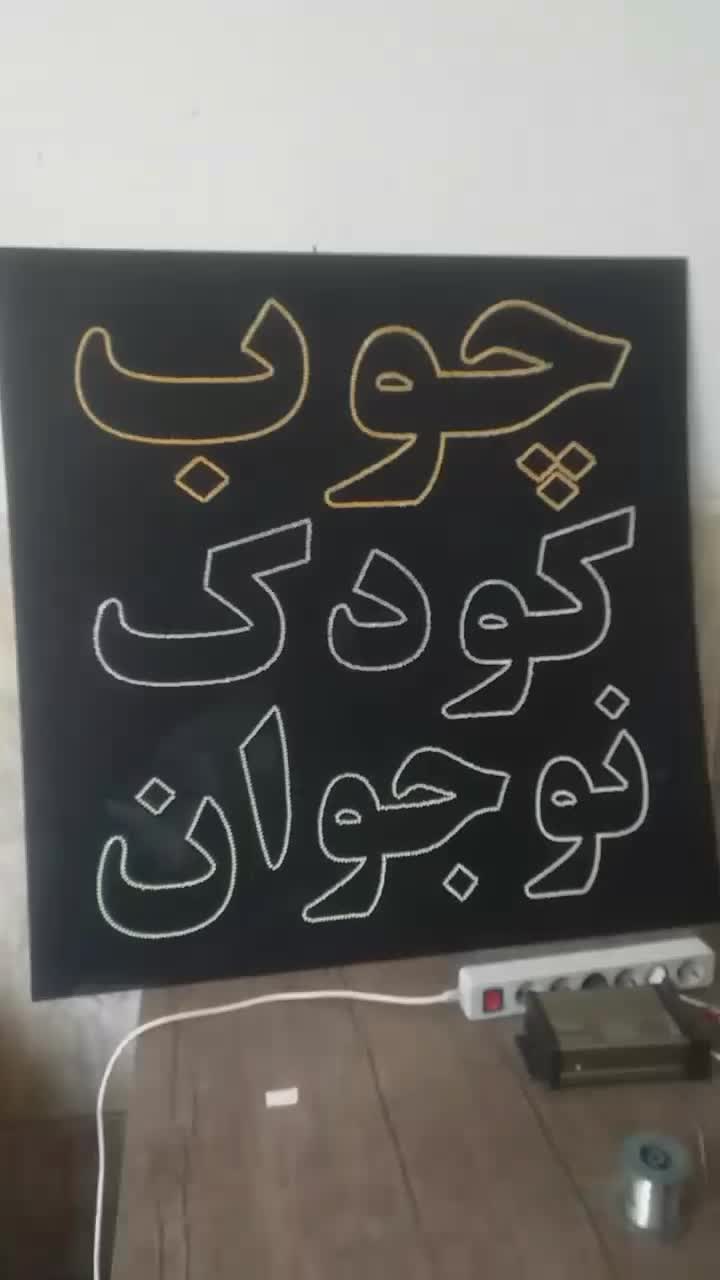 چوب
کودک
نوجوان